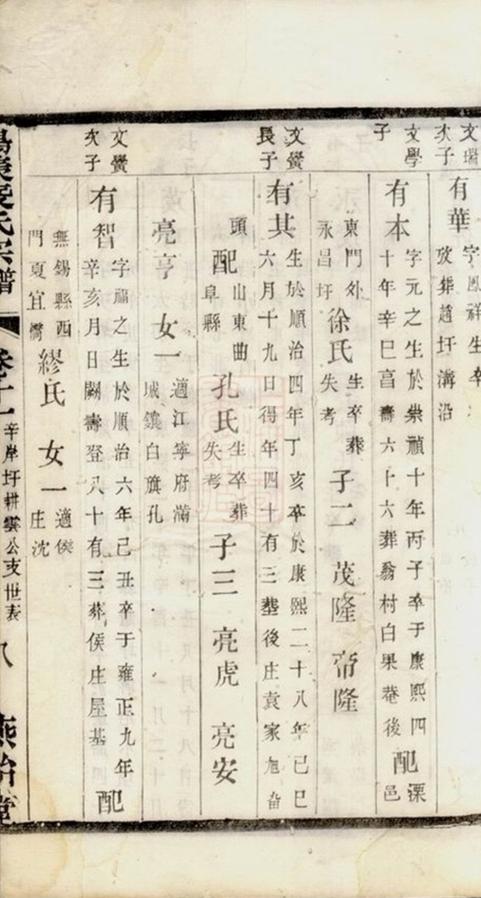 文瑞次子 有華 字鳳祥生卒攷葬趙圩溝沿
文學子 有本 字元之生於崇禎十年丙子卒于康熙四十年辛巳㫖壽六十六葬翁村白果菴後 配 溧邑
東門外永昌圩 徐氏 生卒葬失考 子二 茂隆 帝隆
文鸞長子 有其 生於順治四年丁亥卒於康熙二十八年己巳六月十九日得年四十有三塟後庄袁家旭㽟
頭 配 山東曲阜縣 孔氏 生卒葬失考 子三 亮虎 亮安
亮亨 女一 適江寧府滿城鑲白旗孔
文鸞次子 有智 字福之生於順治六年己丑卒于雍正九年辛亥月日闕壽登八十有三葬侯庄屋基 配
無錫縣西門夏宜橋 繆氏 女一 適侯庄沈
氏宗譜 卷十一 辛岸圩耕雲公支世表 八 燕怡堂